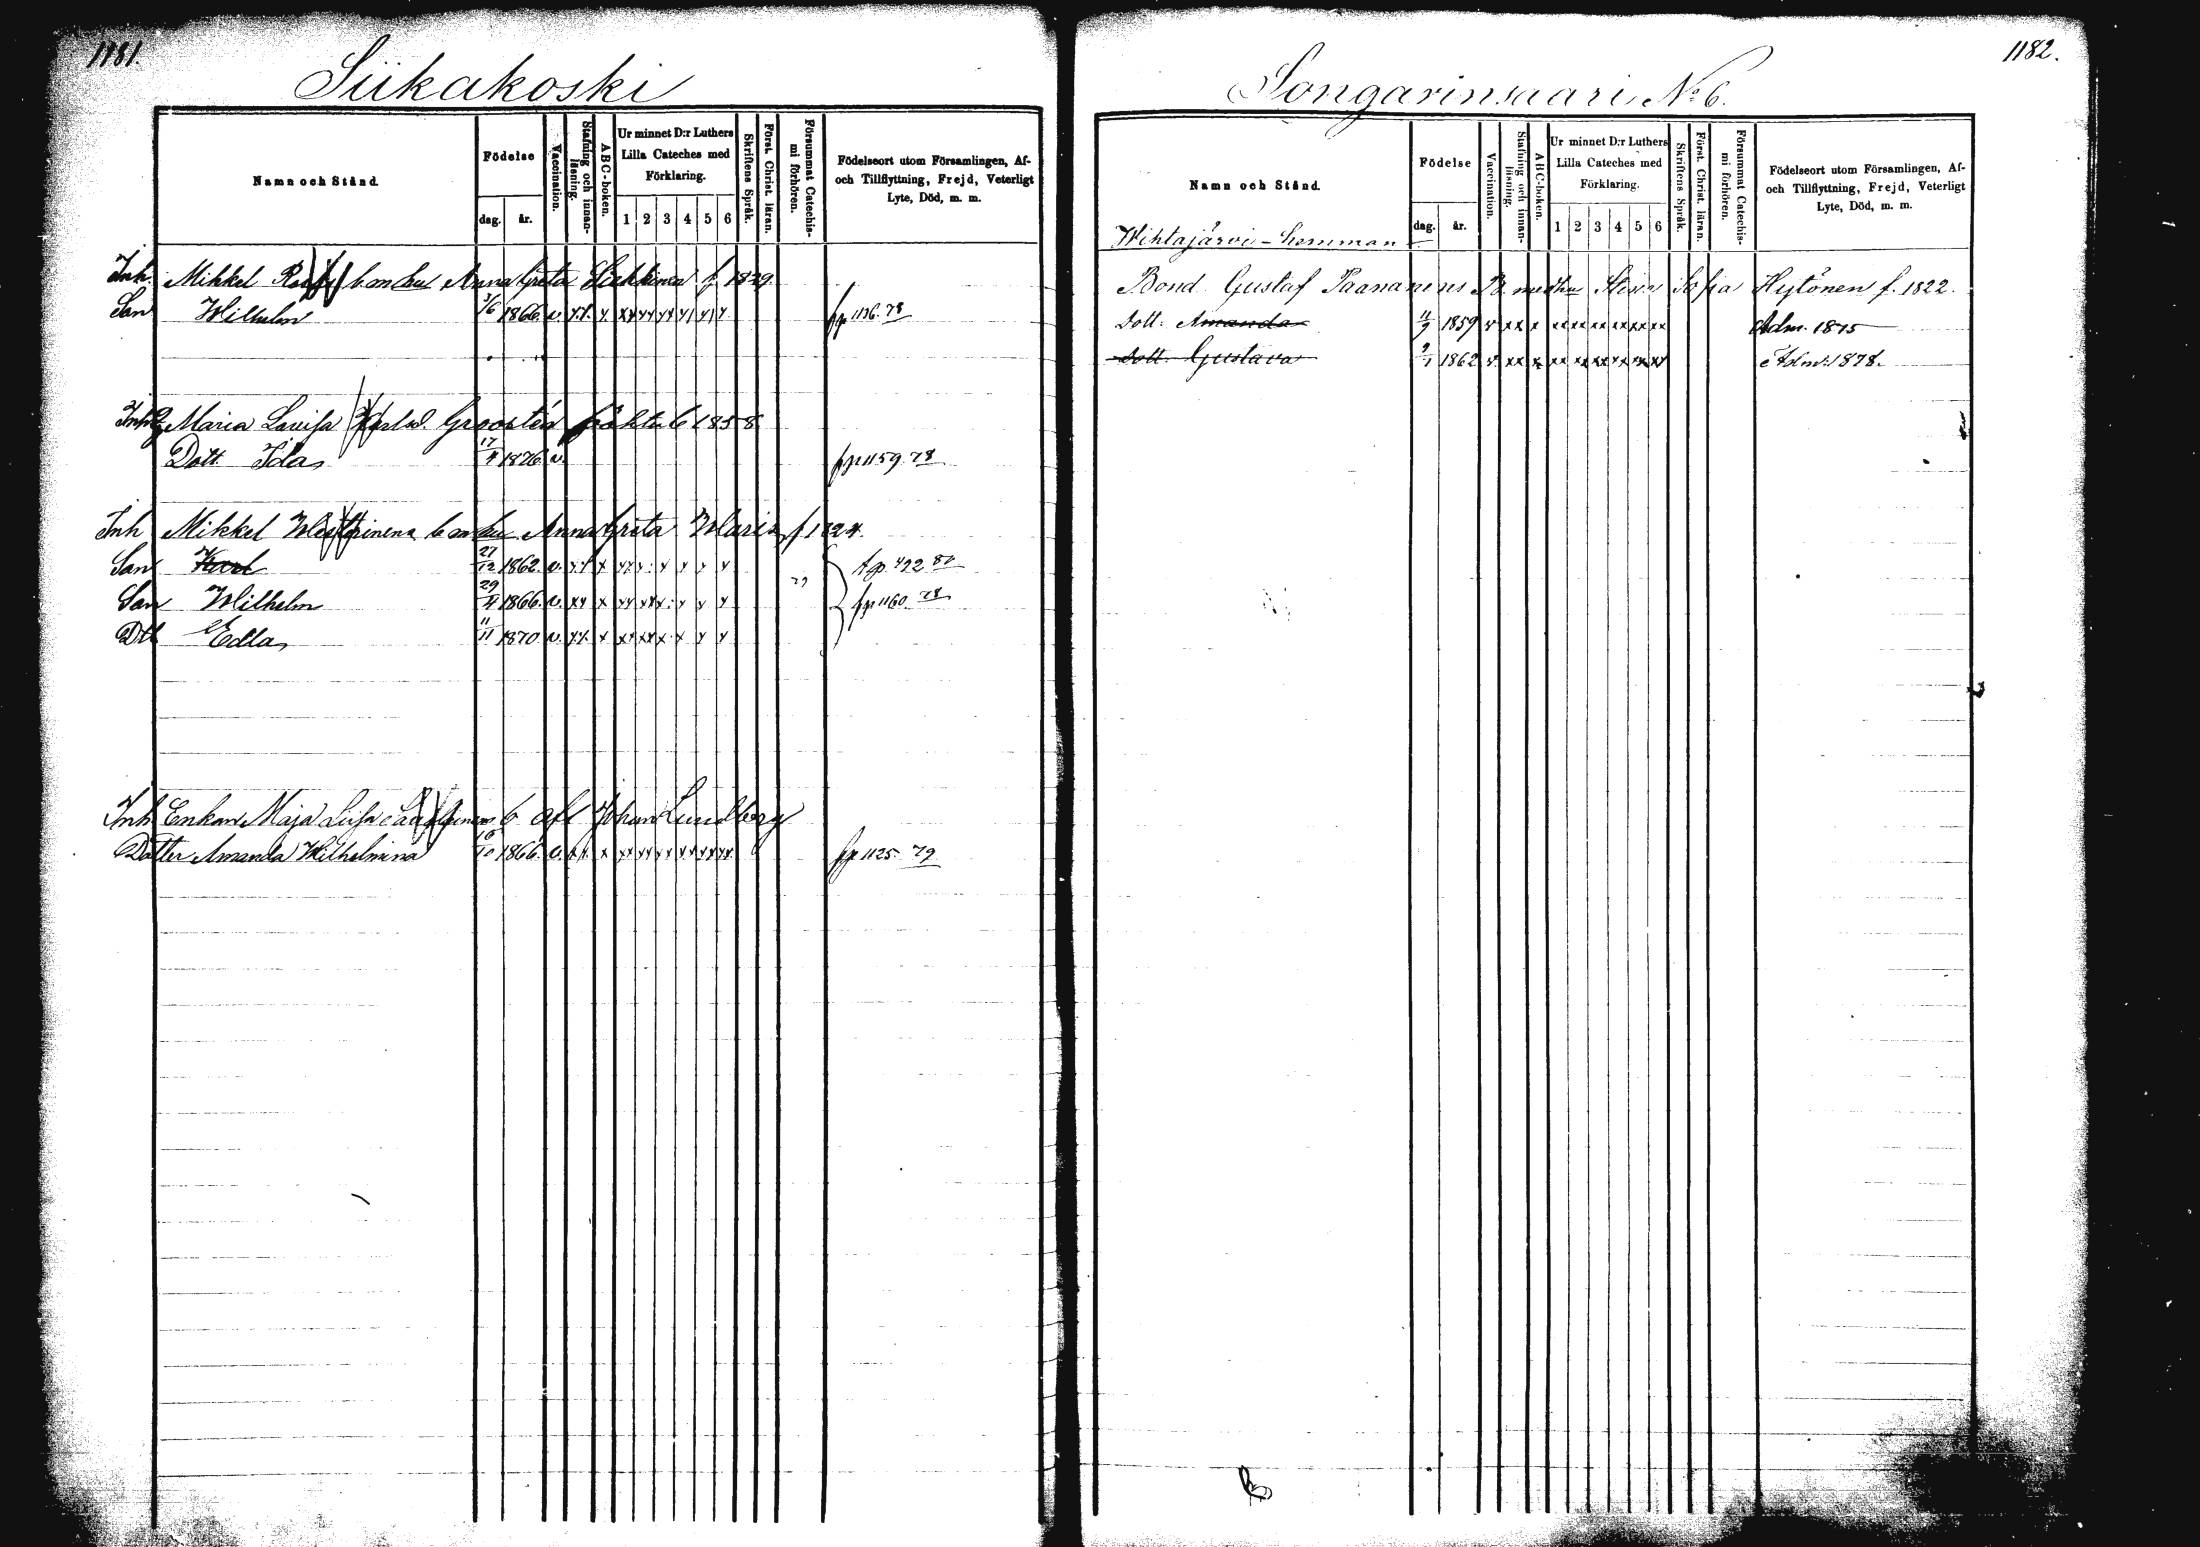 1181.
Siikakoski
Namn och Stånd.
Födelse
dag. år.
Vaccination.
Stafning och innanläsning.
ABC-boken.
Ur minnet D:r Luthers Lilla Cateches med Förklaring.
1 2 3 4 5 6
Skriftens Språk.
Först. Christ. läran.
Försummat Catechismi förhören.
Födelseort utom Församlingen, Af- och Tillflyttning, Frejd, Veterligt Lyte, Död, m. m.
Inh. Mikkel b m hu Anna Greta f 1829.
Son Wilhelm 3/6 1866. v. x x x xx xx xx x x x fp 1136. 78
Inh Maria Lovisa 1858
Dott. Ida 17/4 1876 v. fp 1159. 78
Inh Mikkel b m hu Anna Greta f 1824.
Son Karl 27/12 1862. v. x x x xx x x x x x fp 492 80
Son Wilhelm 29/4 1866. v. xx x xx xxx x x x fp 1160. 78
Dtt Edla 11/11 1870 v. x x x xx xx x x x x
Inh Enkan Maja Lisa b afl Johan Lundberg
Dotter Amanda Wilhelmina 6/10 1866. v. x x x xx xx xx xx xx xx fp 1125. 79
1182.
Songarinsaari No 6.
Namn och Stånd.
Födelse
dag. år.
Vaccination.
Stafning och innanläsning.
ABC-boken.
Ur minnet D:r Luthers Lilla Cateches med Förklaring.
1 2 3 4 5 6
Skriftens Språk.
Först. Christ. läran.
Försummat Catechismi förhören.
Födelseort utom Församlingen, Af- och Tillflyttning, Frejd, Veterligt Lyte, Död, m. m.
Wihtajärvi - hemman
Bond. Gustaf Paananens B. med hu Stina Sofia Hytönen f. 1822.
Dott. Amanda 11/9 1859 v xx x xx xx xx xx xx xx Adm. 1875
Dott. Gustava 9/1 1862 v. xx x xx xx xx xx xx xx Adm. 1878.